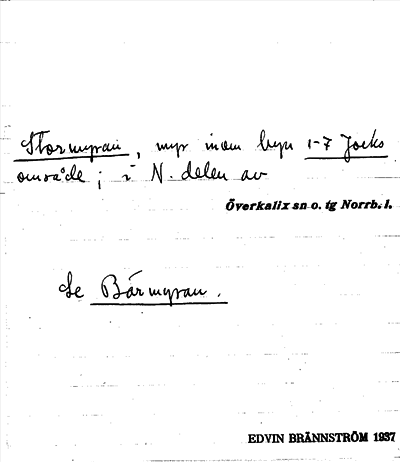 Stormyran, myr inom byn 1-7 Jocks
område; i N. delen av
Överkalix sn o. tg Norrb. l.
Se Bärmyran.
EDVIN BRÄNNSTRÖM 1937